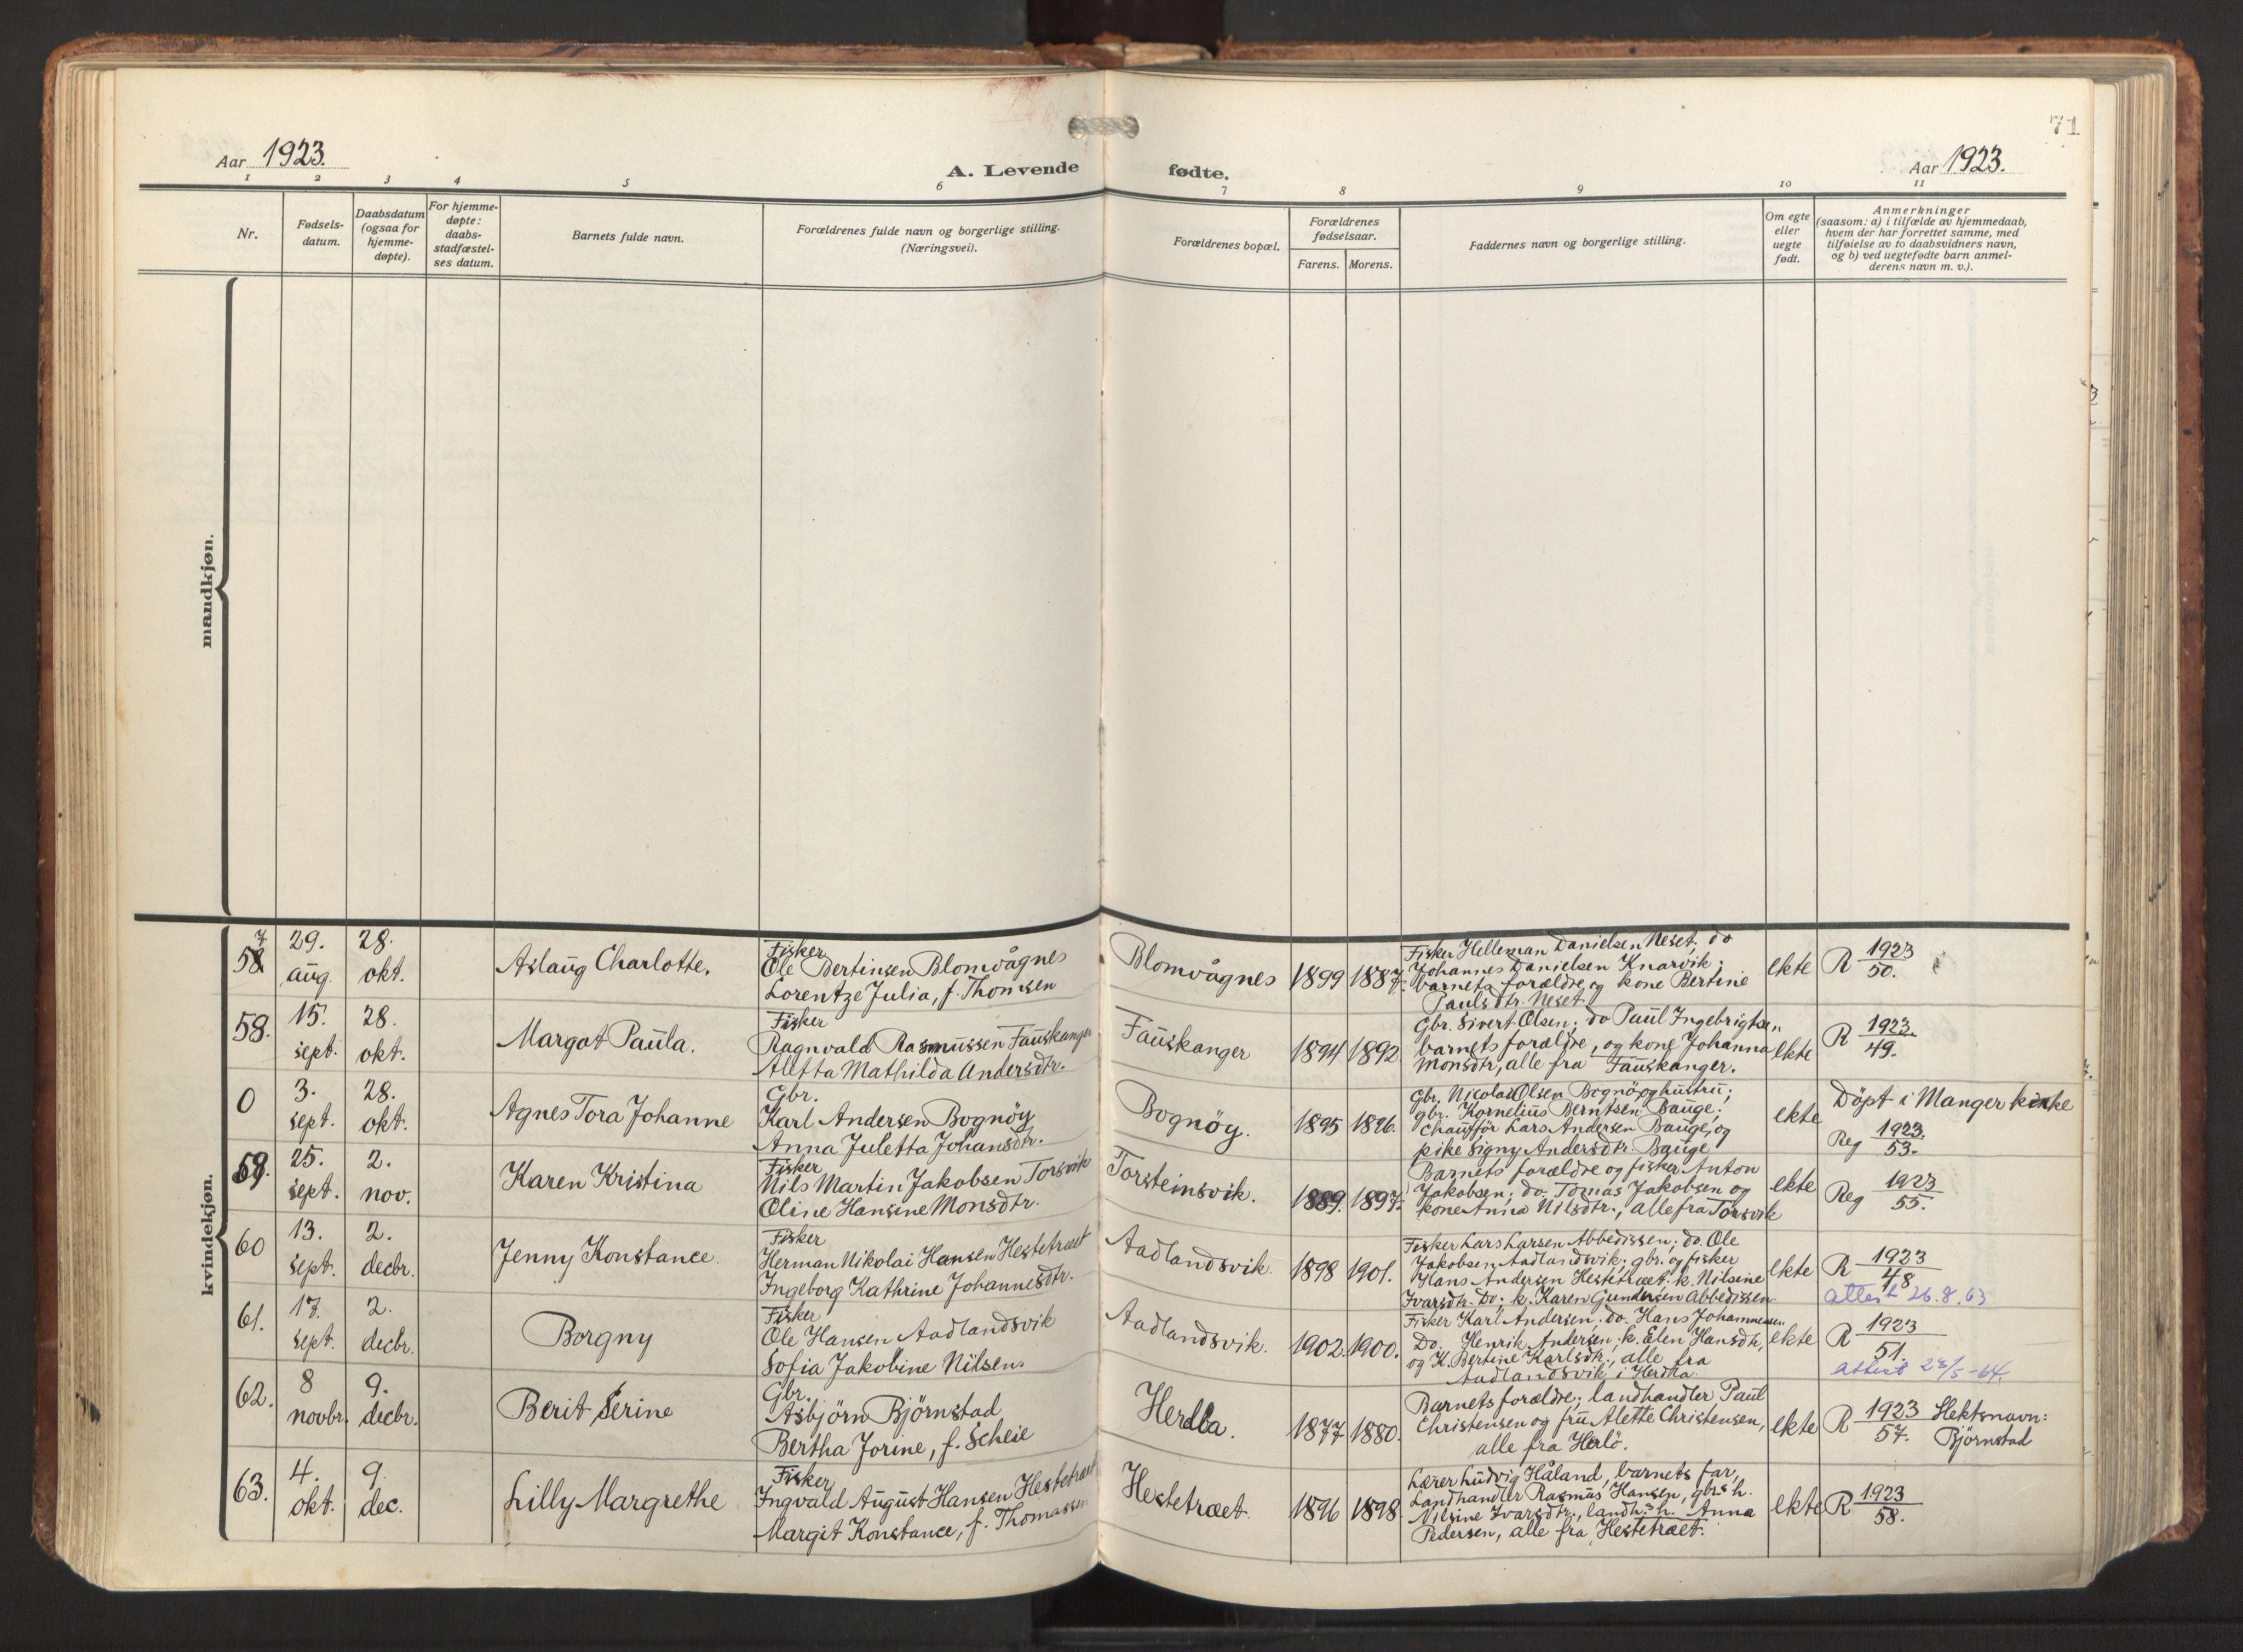 71
Aar 1923.
A. Levende fødte.
Aar 1923.
1 2 3 4 5 6 7 8 9 10 11
Nr.
Fødsels-
datum.
Daabsdatum
(ogsaa for
hjemme-
døpte).
For hjemme-
døpte:
daabs-
stadfæstel-
ses datum.
Barnets fulde navn.
Forældrenes fulde navn og borgerlige stilling.
(Næringsvei).
Forældrenes bopæl.
Forældrenes
fødselsaar.
Farens. Morens.
Faddernes navn og borgerlige stilling.
Om egte
eller
uegte
født.
Anmerkninger
(saasom: a) i tilfælde av hjemmedaab,
hvem der har forrettet samme, med
tilføielse av to daabsvidners navn,
og b) ved uegtefødte barn anmel-
derens navn m. v.).
mandkjøn.
kvindekjøn.
7
58
29.
aug.
28.
okt.
Aslaug Charlotte.
Fisker
Ole Bertinsen Blomvågnes
Lorentze Julia, f. Thomsen
Blomvågnes
1899
1887.
Fisker Helleman Danielsen Neset; do
Johannes Danielsen Knarvik;
barnets forældre og kone Bertine
Paulsdtr. Neset
ekte
R 1923
50.
58.
15.
sept.
28.
okt.
Margot Paula.
Fisker
Ragnvald Rasmussen Fauskanger
Aletta Mathilda Andersdtr.
Fauskanger
1894
1892
Gbr. Sivert Olsen; do Paul Ingebrigtsen
barnets forældre, og kone Johanna
Monsdtr, alle fra Fauskanger.
ekte
R 1923.
49.
0
3.
sept.
28.
okt.
Agnes Tora Johanne
Gbr.
Karl Andersen Bognöy
Anna Juletta Johansdtr.
Bognöy.
1895
1896.
Gbr. Nicolai Olsen Bognö og hustru;
gbr. Kornelius Berntsen Bauge;
Chaufför Lars Andersen Bauge, og
pike Signy Andersdtr. Bauge
ekte
Döpt i Manger kirke
Reg 1923.
53.
59.
25.
sept.
2.
nov.
Karen Kristina
Fisker
Nils Martin Jakobsen Torsvik
Oline Hansine Monsdtr.
Torsteinsvik.
1889.
1897.
Barnets forældre og fisker Anton
Jakobsen; do. Tomas Jakobsen og
kone Anna Nilsdtr., alle fra Torsvik
ekte
Reg 1923
55.
60
13.
sept.
2.
decbr.
Jenny Konstance.
Fisker
Herman Nikolai Hansen Hestetræet
Ingeborg Kathrine Johannesdtr.
Aadlandsvik.
1898
1901.
Fisker Lars Larsen Abbedissen; do. Ole
Jakobsen Aadlandsvik; gbr. og fisker
Hans Andersen Hestetræet; k. Nilsine
Ivarsdtr. Do; k. Karen Gundersen Abbedissen
ekte
R 1923
48
attest 26.8.63
61.
17.
sept.
2.
decbr.
Borgny
Fisker
Ole Hansen Aadlandsvik
Sofia Jakobine Nilsen.
Aadlandsvik.
1902.
1900.
Fisker Karl Andersen; do. Hans Johannessen
Do. Henrik Andersen; k. Elen Hansdtr,
og K. Bertine Karlsdtr., alle fra
Aadlandsvik i Herdla.
ekte
R 1923
51.
attest 28/5-64.
62.
8
novbr.
9.
decbr.
Berit Serine
Gbr.
Asbjörn Björnstad
Bertha Jorine, f. Scheie
Herdla.
1877
1880.
Barnets forældre; landhandler Paul
Christensen og fru Alette Christensen,
alle fra Herlö.
ekte
R 1923
57.
Slektsnavn:
Björnstad
63.
4.
okt.
9.
dec.
Lilly Margrethe
Fisker
Ingvald August Hansen Hestetræet
Margit Konstance, f. Thomassen
Hestetræet.
1896
1898
Lærer Ludvig Håland, barnets far,
Landhandler Rasmus Hansen, gbrs h.
Nilsine Ivarsdtr., landh.s h. Anna
Pedersen, alle fra Hestetræet.
ekte
R 1923
58.